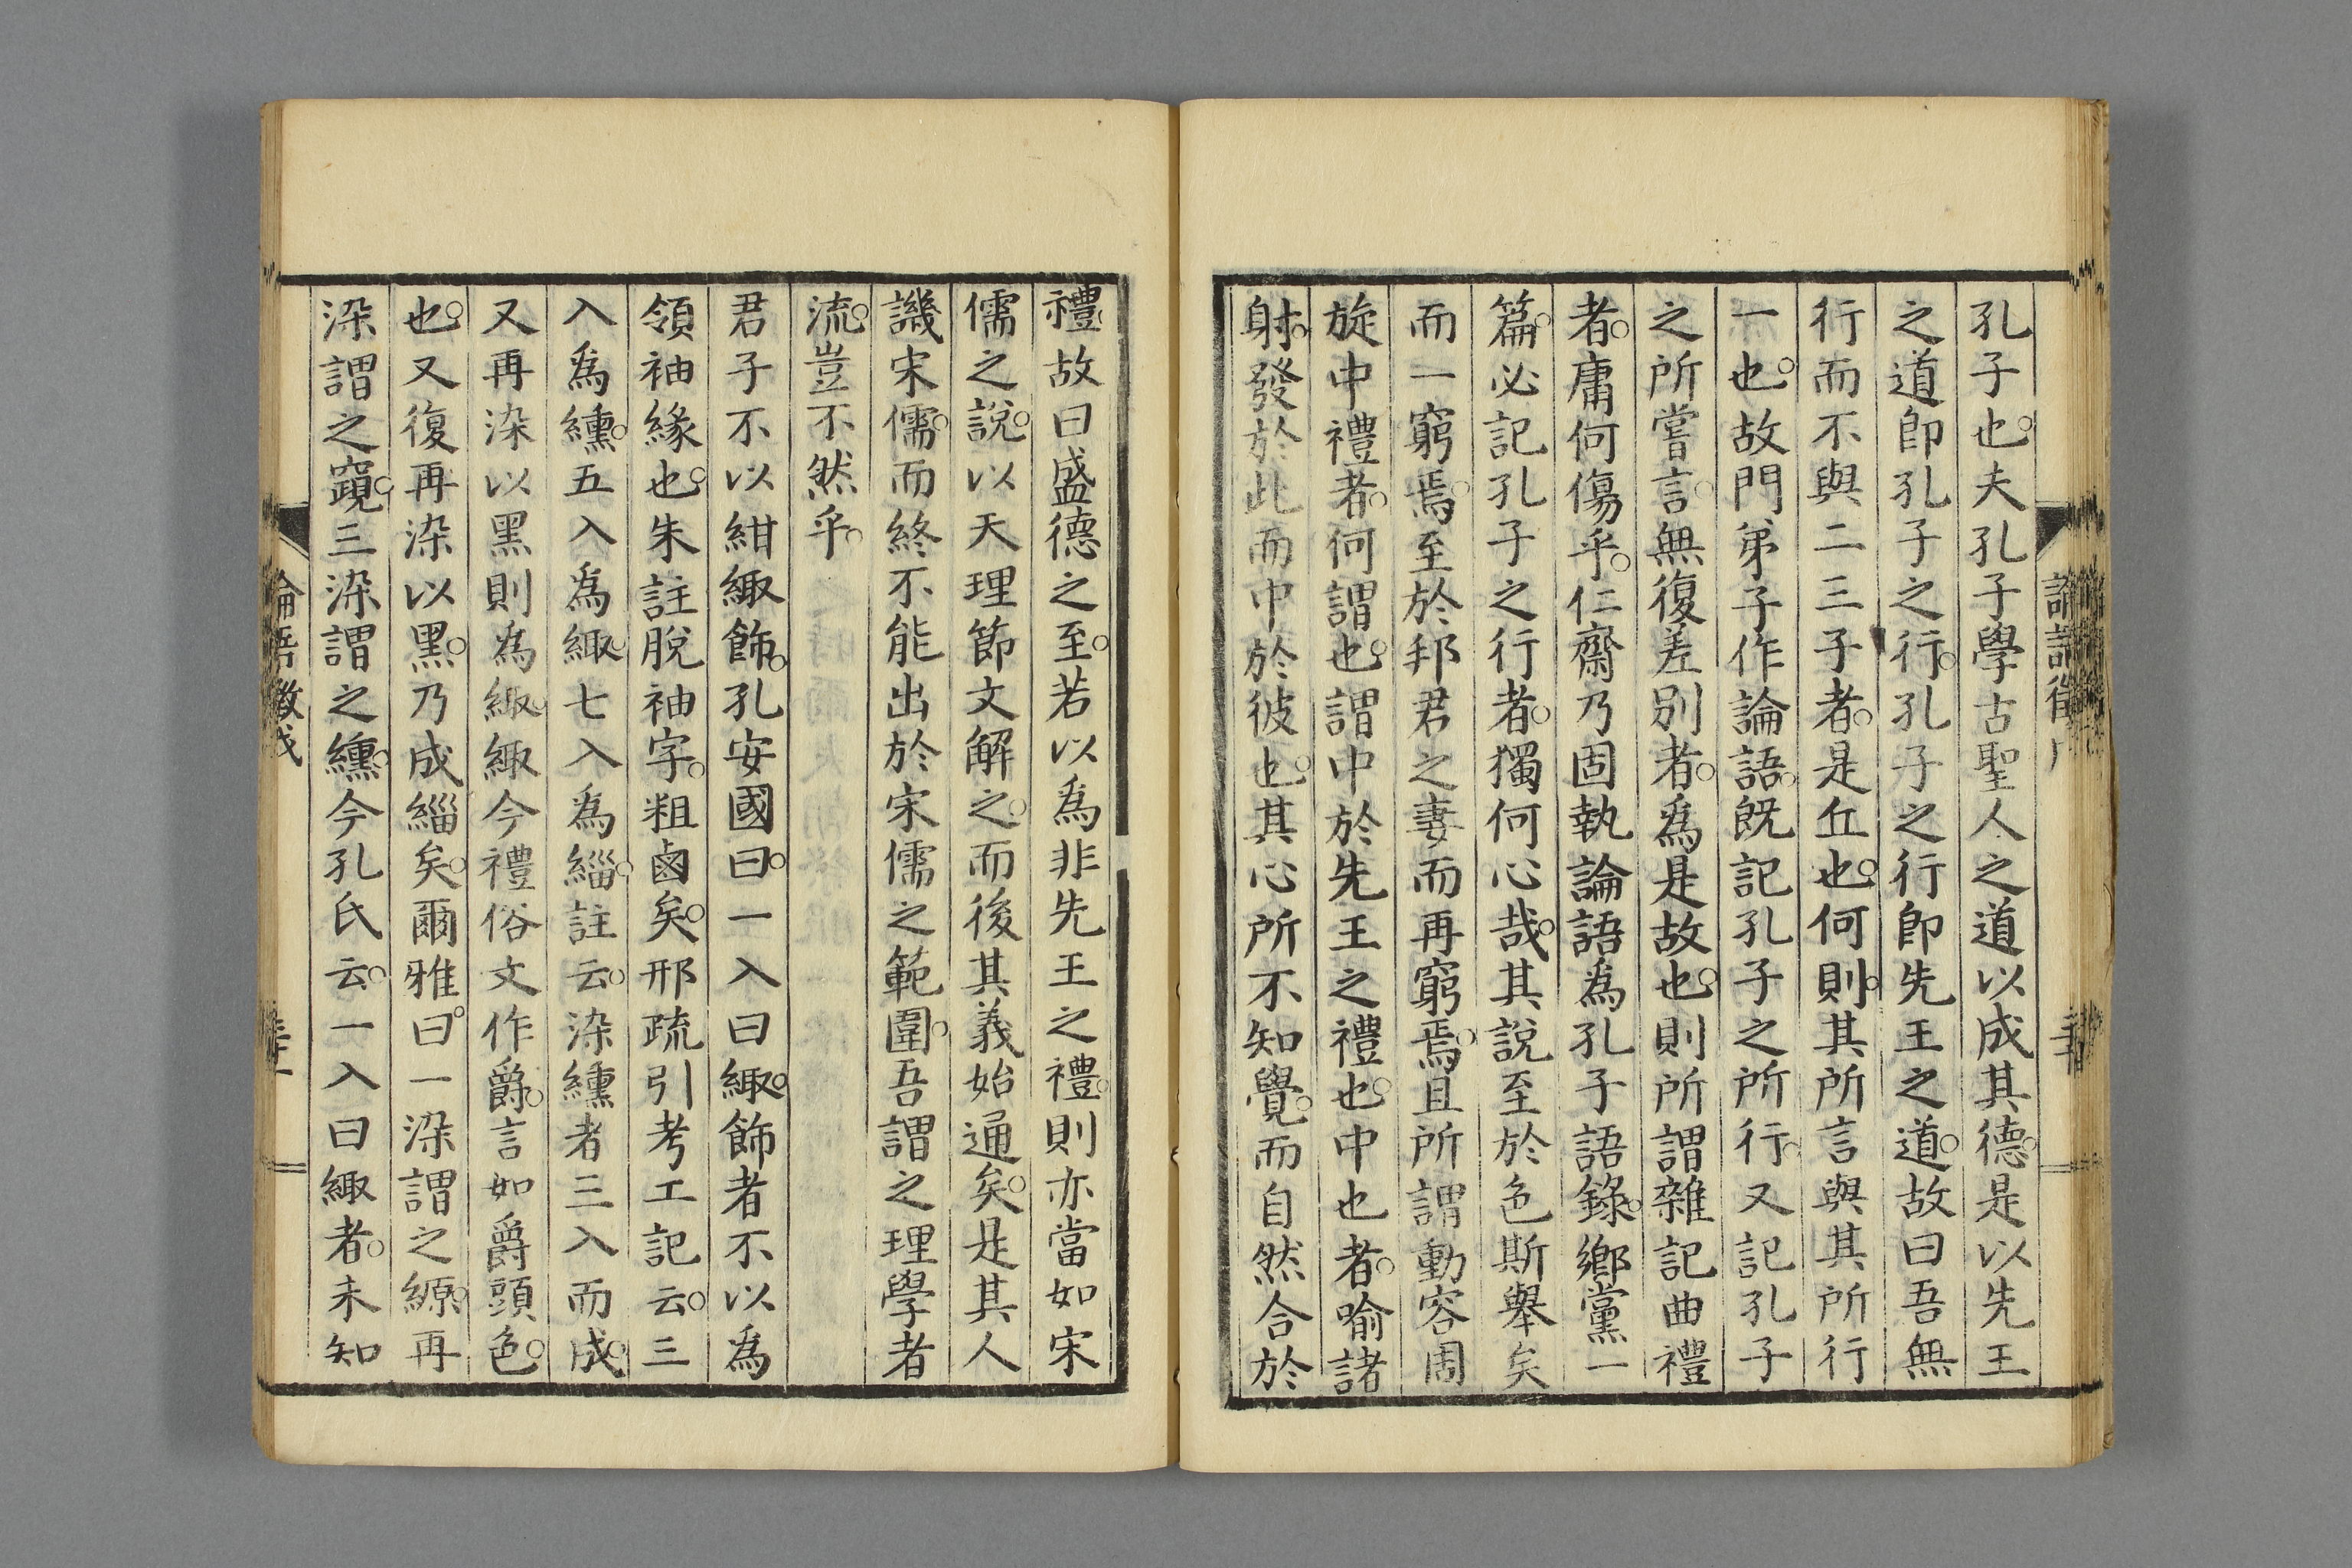 孔子也。夫孔子學古聖人之道以成其德。是以先王
之道即孔子之行。孔子之行即先王之道。故曰吾無
行而不與二三子者。是丘也。何則。其所言與其所行
一也。故門弟子作論語。既記孔子之所行。又記孔子
之所嘗言。無復差別者。爲是故也。則所謂雜記曲禮
者。庸何傷乎。仁齋乃固執論語爲孔子語錄。鄉黨一
篇。必記孔子之行者。獨何心哉。其說至於色斯舉矣
而一窮焉。至於邦君之妻而再窮焉。且所謂動容周
旋中禮者。何謂也。謂中於先王之禮也。中也者。喻諸
射。發於此而中於彼也。其心所不知覺。而自然合於
禮。故曰盛德之至。若以爲非先王之禮。則亦當如宋
儒之說。以天理節文解之。而後其義始通矣。是其人
譏宋儒。而終不能出於宋儒之範圍。吾謂之理學者
流。豈不然乎。
君子不以紺緅飾。孔安國曰。一入曰緅。飾者不以爲
領袖緣也。朱註脫袖字。粗鹵矣。邢疏引考工記云。三
入爲纁。五入爲緅。七入爲緇。註云。染纁者三入而成。
又再染以黑則爲緅。緅今禮俗文作爵。言如爵頭色。
也。又復再染以黑。乃成緇矣。爾雅曰。一染謂之縓。再
染謂之竀。三染謂之纁。今孔氏云。一入曰緅者。未知
論語徵戊